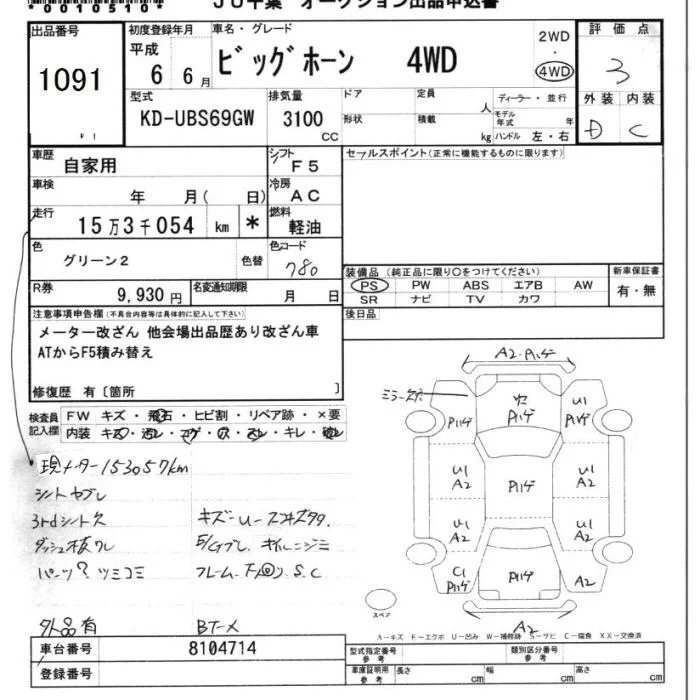 *0010510*
JU千葉 オークション出品申込書
出品番号 初度登録年月 車名・グレード 評価点
1091
平成 6 6月 ビッグホーン 4WD 2WD・4WD 3
型式 排気量 ドア 定員 人 ディーラー・並行 外装 内装
KD-UBS69GW 3100 CC 形状 積載 kg モデル年式 年 ハンドル 左・右 D C
車歴 自家用 シフト F5 セールスポイント(正常に機能するものに限ります)
車検 年 月( 日) 冷房 AC
走行 15万3千054 km * 燃料 軽油
色 グリーン2 色替 色コード 780
装備品(純正品に限り○をつけてください) 新車保証書
PS PW ABS エアB AW 有・無
SR ナビ TV カワ
R券 9,930円 名変通知期限 月 日 後日品
注意事項申告欄(不具合内容等は具体的に記入して下さい)
メーター改ざん 他会場出品歴あり改ざん車
ATからF5積み替え
修復歴 有〔箇所 〕
検査員記入欄 FW キズ・飛石・ヒビ割・リペア跡・×要
内装 キズ・汚レ・コゲ・穴・スレ・キレ・破レ
現メーター153057km
シートヤブレ
3rdシート欠
ダッシュ板ワレ
パーツ?ツミコミ
外品有
キズーUーズキズタタ.
E/Gブレ. オイルニジミ
フレーム.下回.S.C
BTーX
A2・Pハゲ
ミラー欠
Pハゲ 欠 Pハゲ U1 Pハゲ
U1 A2 Pハゲ U1 A2
U1 A2 U1 A2
C1 Pハゲ Pハゲ A2
スペア
A2
A-キズ E-エクボ U-凹み W-補修跡 S-サビ C-腐食 XX-交換済
車台番号 8104714 型式指定番号 参考 類別区分番号 参考
登録番号 車庫証明用 参考 長さ cm 幅 cm 高さ cm